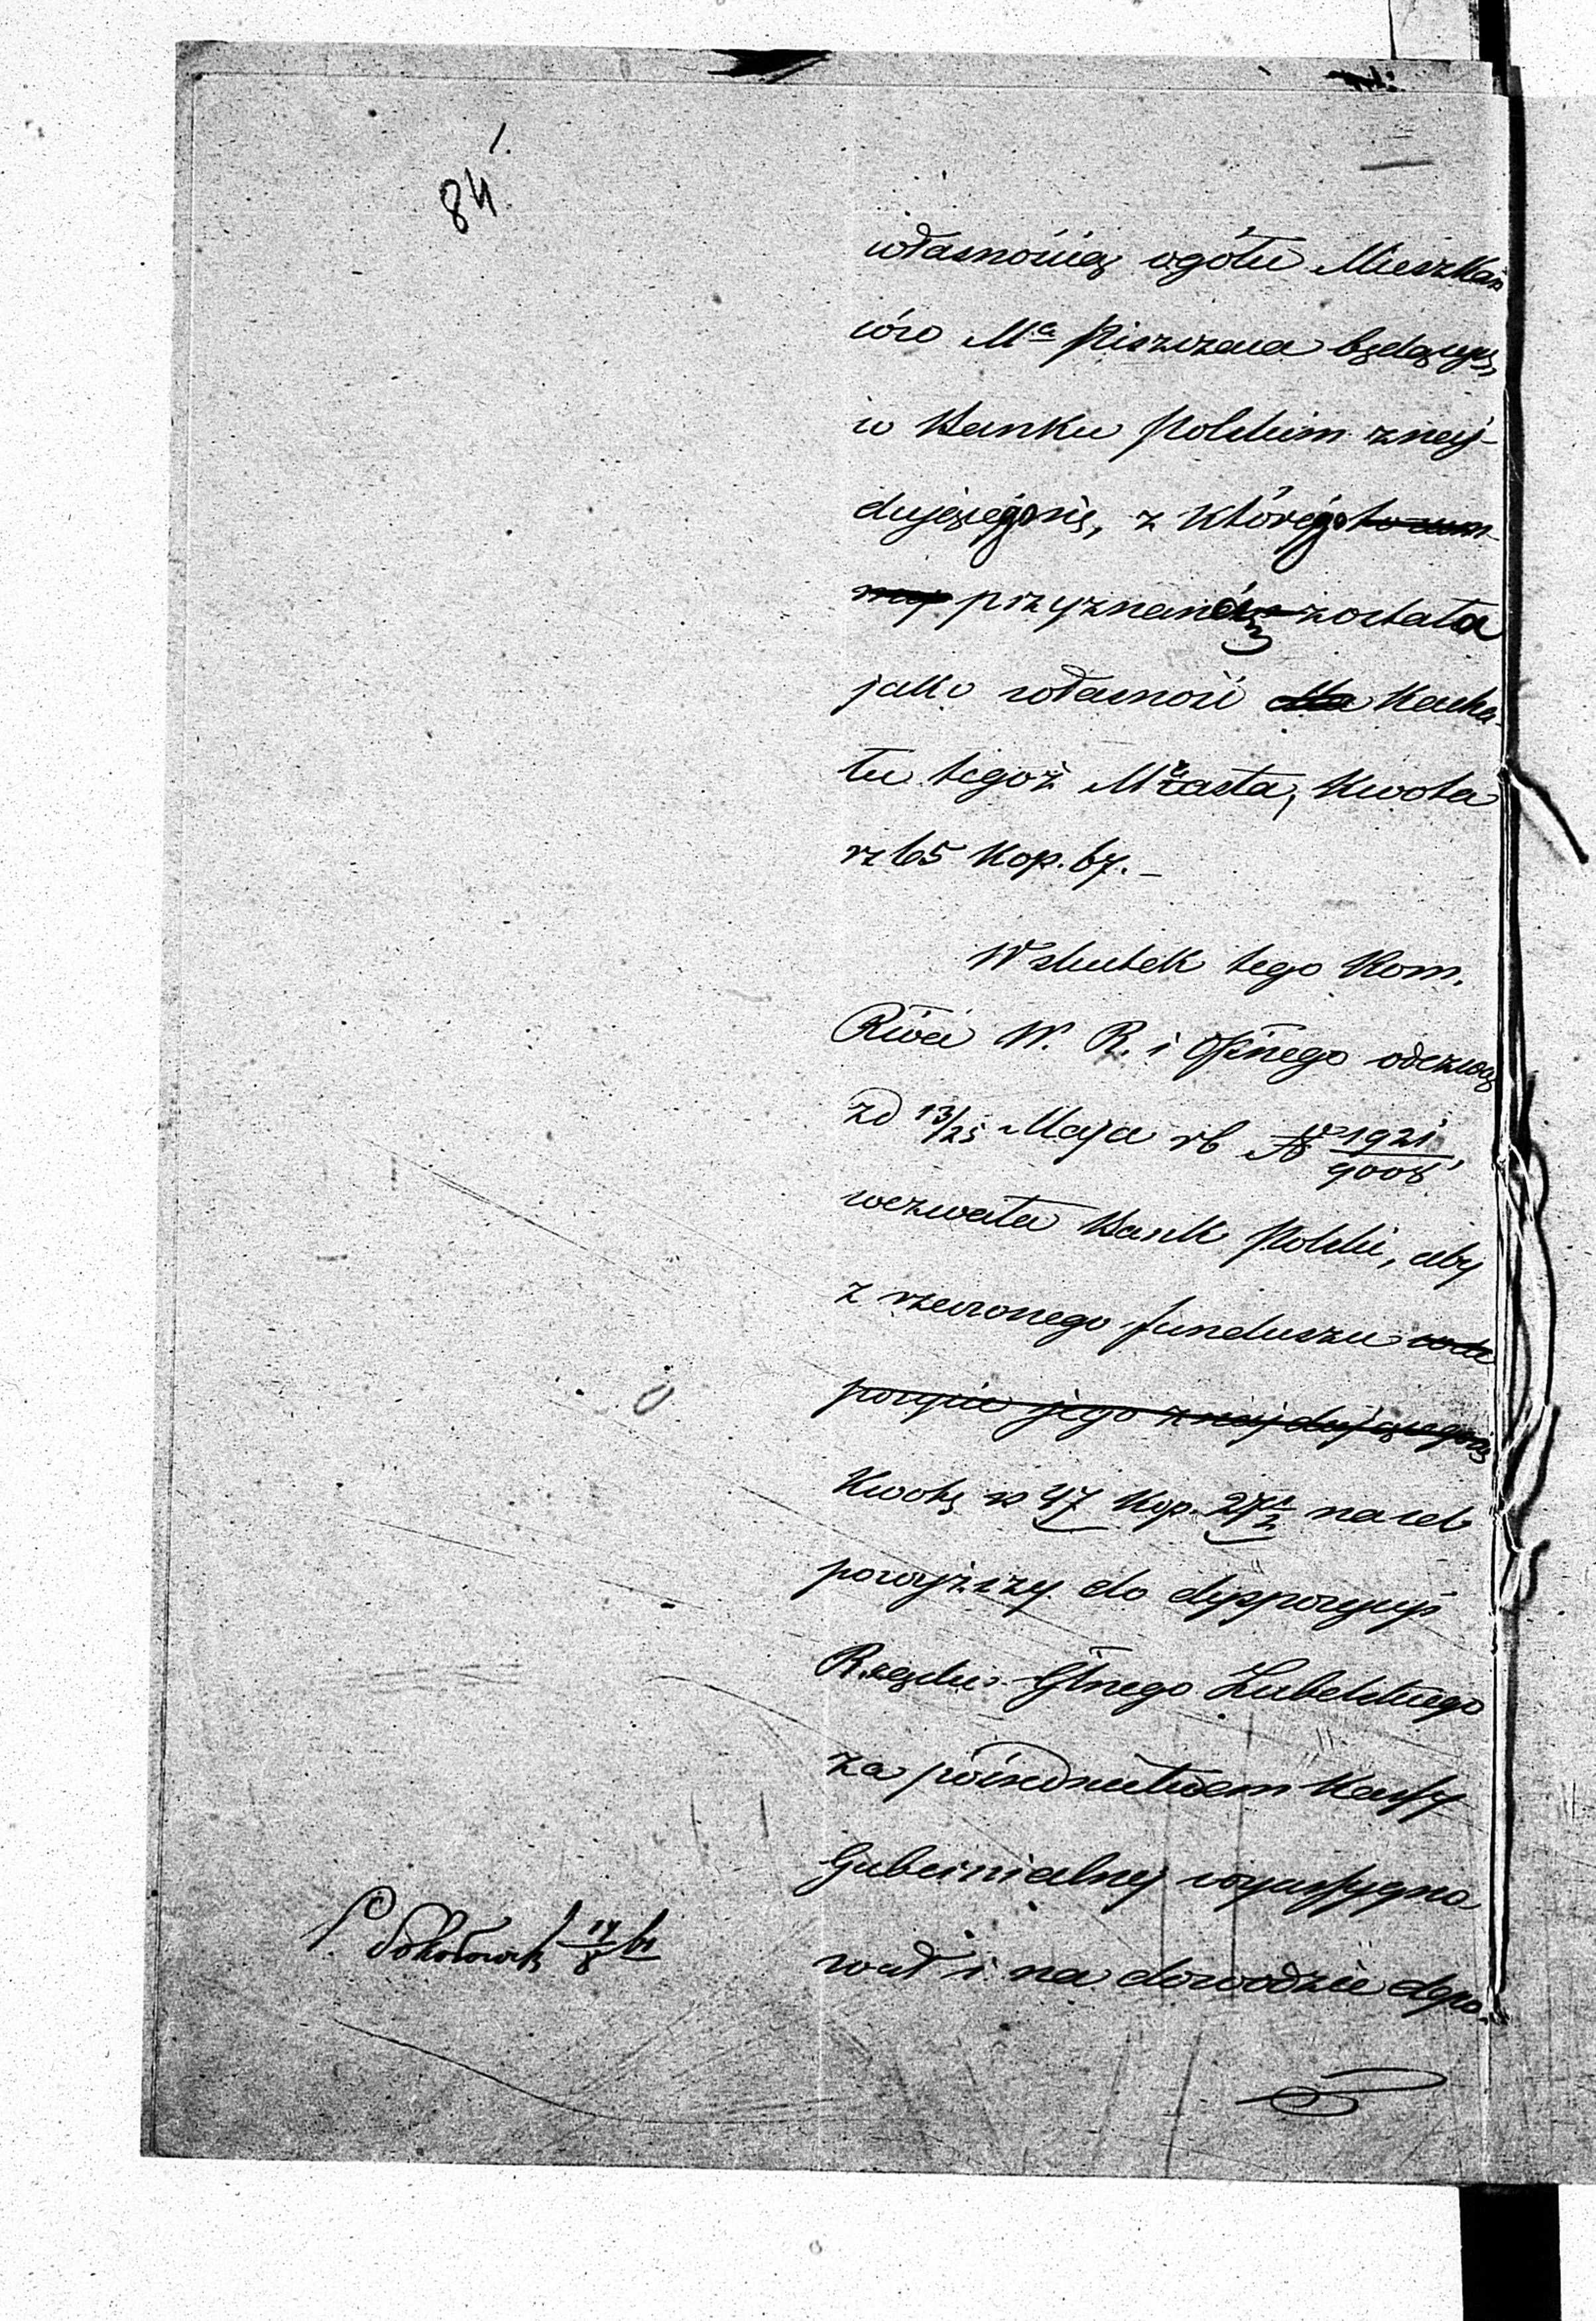 84
własnością ogółu Mieszkań
ców Mta Piszczaca będącyej,
w Banku Polskim znaj-
dującegosię, z którego to sum-
my przyznaną została
jako własność dla Kacha-
łu tegoż Miasta, Kwota
rs 65 Kop. 67. –
Wskutek tego Kom.
Rwa W. R. i OPnego odezwą
zd 13/25 Maja rb № 1921/9008,
wezwała Bank Polski, aby
z rzeczonego funduszu w de
pozycie jego znajdującegosię
Kwotę rs 47 Kop. 27 1/2 na cel
powyższy do dyspozycyi
Rządu Glnego Lubelskiego
za pośrednictwem Kassy
Gubernialnej wyassygno-
wał i na dowodzie depo-
P. Sokołowski 14/8 61